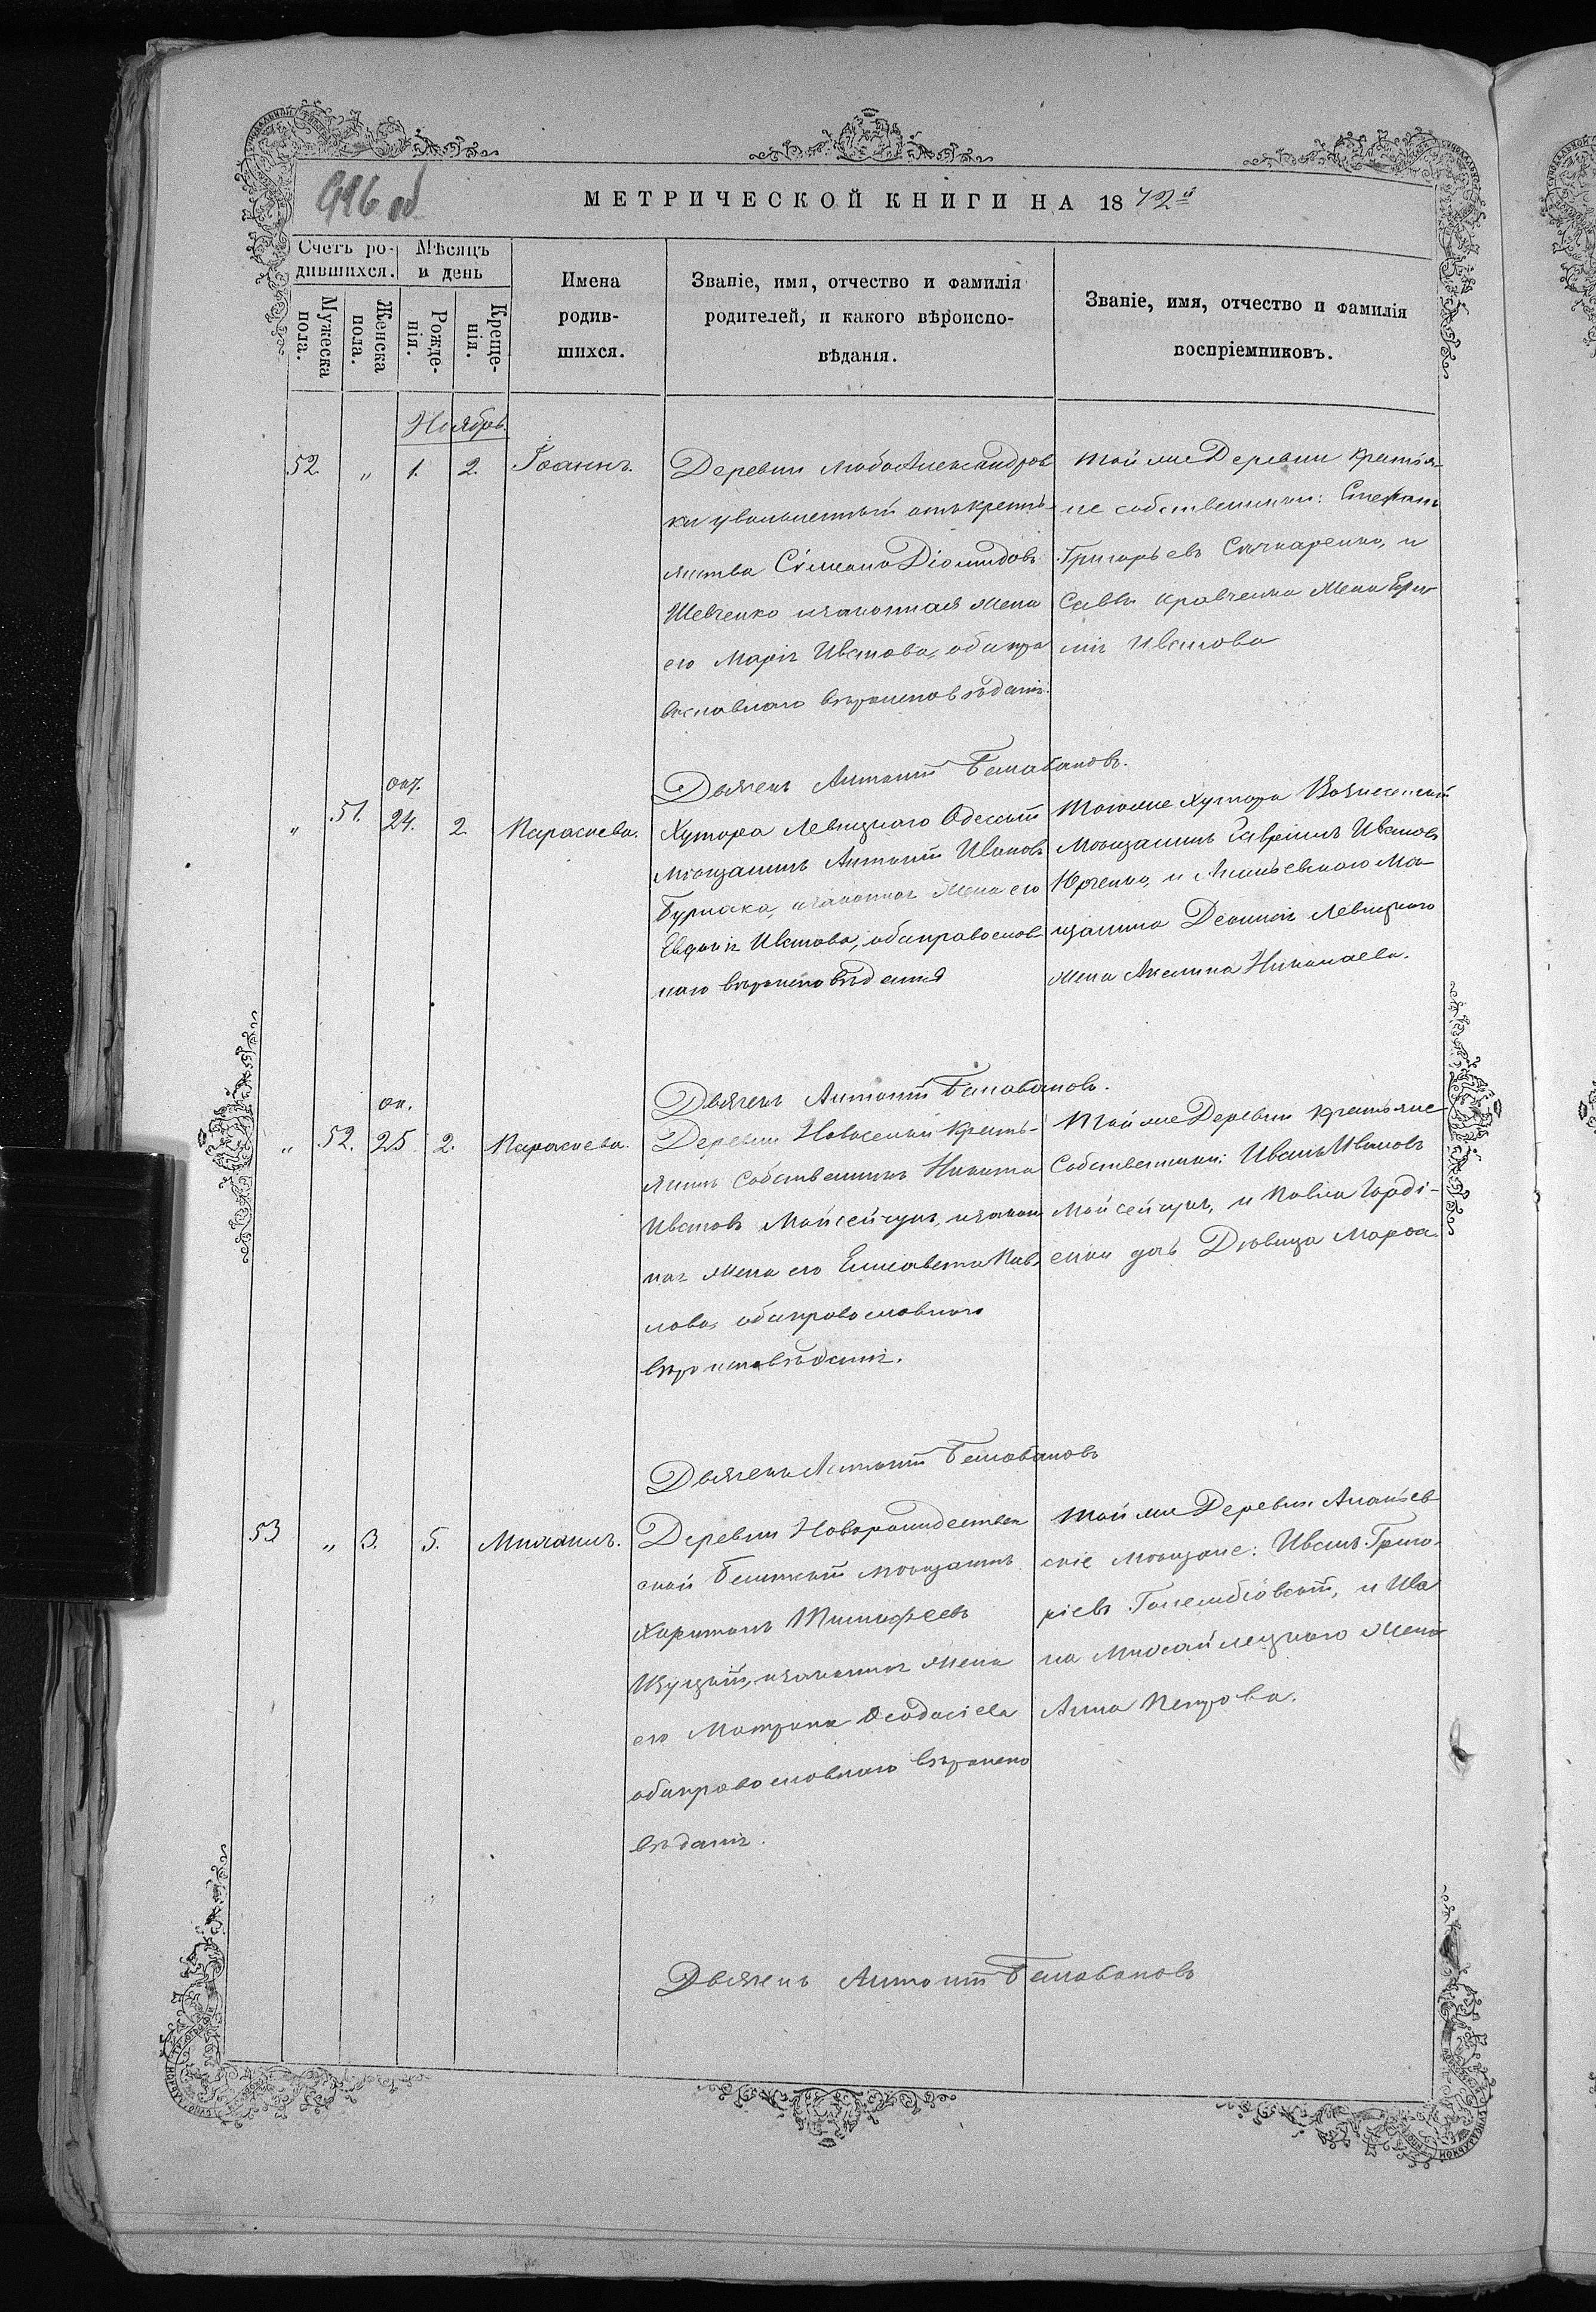 916 об
МЕТРИЧЕСКОЙ КНИГИ НА 1872й
Счетъ ро-
дившихся.
Мѣсяцъ
и день
Мужеска
пола.
Женска
пола.
Рожде-
нія.
Креще-
нія.
Имена
родив-
шихся.
Званіе, имя, отчество и фамилія
родителей, и какого вѣроиспо-
вѣданія.
Званіе, имя, отчество и фамилія
воспріемниковъ.
Ноябрь.
52. " 1. 2. Іоаннъ.
Деревни Любоалександров
ки увольненный отъ крепть
янства Сѵмеонъ Діомидовъ
Шевченко и законная жена
его Марія Иванова, оба пра
вославнаго вѣроисповѣданія.
Той же Деревни крестья-
не собственники: Стефанъ
Григорьевъ Слюсаренко, и
Саввы Кравченка жена
Иванова
Дьячекъ Антоній Балабановъ.
" 51. окт. 24. 2. Параскева.
Хутора Левицкаго Одесскій
Мѣщанинъ Антоній Ивановъ
Бурлака, и законная жена его
Евдокія Иванова, оба православ-
наго вѣроисповѣданія
Того же Хутора Вознесенскій
Мѣщанинъ Гавріилъ Ивановъ
Юрченко, и Ананьевскаго Мѣ-
щанина Левицкаго
жена Акелина Николаева.
Дьячекъ Антоній Балабановъ.
" 52. ок. 25. 2. Параскева.
Деревни Новоселки Кресть-
янинъ Собственникъ Никита
Ивановъ Мойсейчукъ, и закон
ная жена его Елисавета Пав-
лова, оба православнаго
вѣроисповѣданія.
Той же Деревни крестьяне
Собственники: Иванъ Ивановъ
Мойсейчукъ, и Павла Горді-
енки дочь Дѣвица Марѳа.
Дьячекъ Антоній Балабановъ
53 " 3. 5. Михаилъ.
Деревни Новорождествен
ской мѣщанинъ
Харитонъ Тимофеевъ
и законная жена
его Матрона Ѳеодосіева
оба православнаго вѣроиспо
вѣданія.
Той же Деревни Ананьев
скіе мѣщане: Иванъ Григо-
ріевъ Голембіовскій, и Ива
на жена
Анна Петрова.
Дьячекъ Антоній Балабановъ